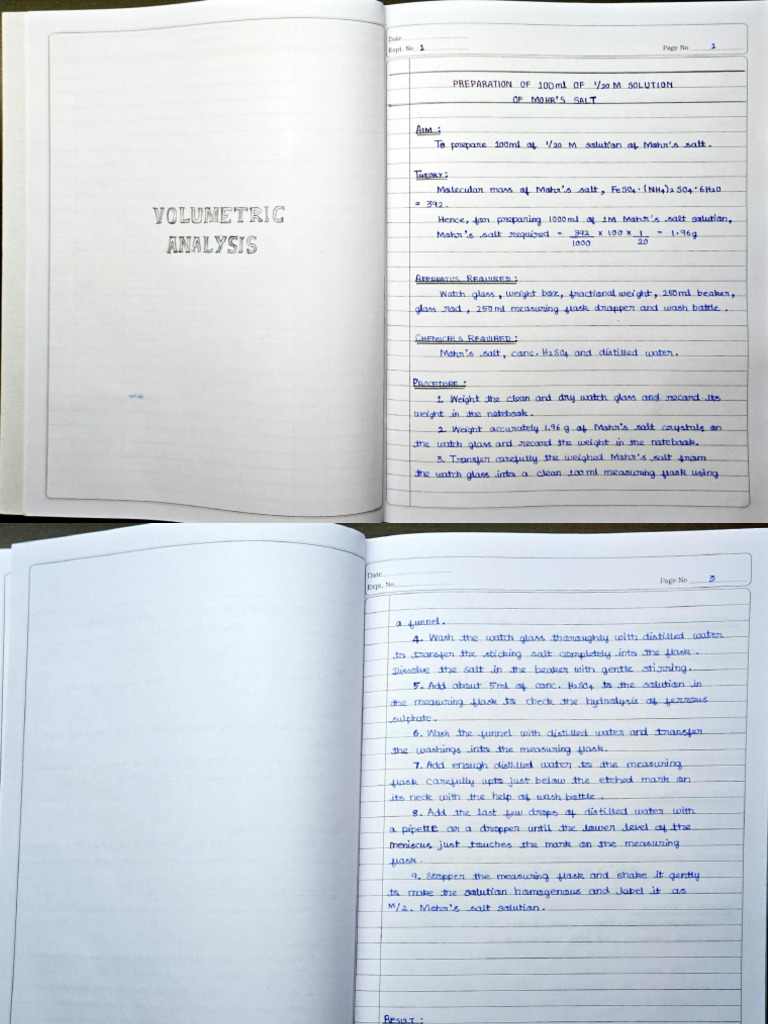 VOLUMETRIC
ANALYSIS
Date
Expt. No 1
Page No 1
PREPARATION OF 100ml OF 1/20 M SOLUTION
OF MOHR'S SALT
AIM:
To prepare 100ml of 1/20 M solution of Mohr's salt.
THEORY:
Molecular mass of Mohr's salt, FeSO4·(NH4)2SO4·6H2O
= 392.
Hence, for preparing 1000ml of 1M Mohr's salt solution,
Mohr's salt required = 392/1000 × 100 × 1/20 = 1.96g
APPARATUS REQUIRED:
Watch glass, weight box, fractional weight, 250ml beaker,
glass rod, 250ml measuring flask drapper and wash bottle.
CHEMICALS REQUIRED:
Mohr's salt, conc. H2SO4 and distilled water.
PROCEDURE:
1. Weight the clean and dry watch glass and record its
weight in the notebook.
2. Weight accurately 1.96 g of Mohr's salt crystals on
the watch glass and record the weight in the notebook.
3. Transfer carefully the weighed Mohr's salt from
the watch glass into a clean 100ml measuring flask using
Date
Expt. No
Page No 3
a funnel.
4. Wash the watch glass thoroughly with distilled water
to transfer the sticking salt completely into the flask.
Dissolve the salt in the beaker with gentle stirring.
5. Add about 5ml of conc. H2SO4 to the solution in
the measuring flask to check the hydrolysis of ferrous
sulphate.
6. Wash the funnel with distilled water and transfer
the washings into the measuring flask.
7. Add enough distilled water to the measuring
flask carefully upto just below the etched mark on
its neck with the help of wash bottle.
8. Add the last few drops of distilled water with
a pipette or a dropper until the lower level of the
meniscus just touches the mark on the measuring
flask.
9. Stopper the measuring flask and shake it gently
to make the solution homogenous and label it as
M/2. Mohr's salt solution.
RESULT: